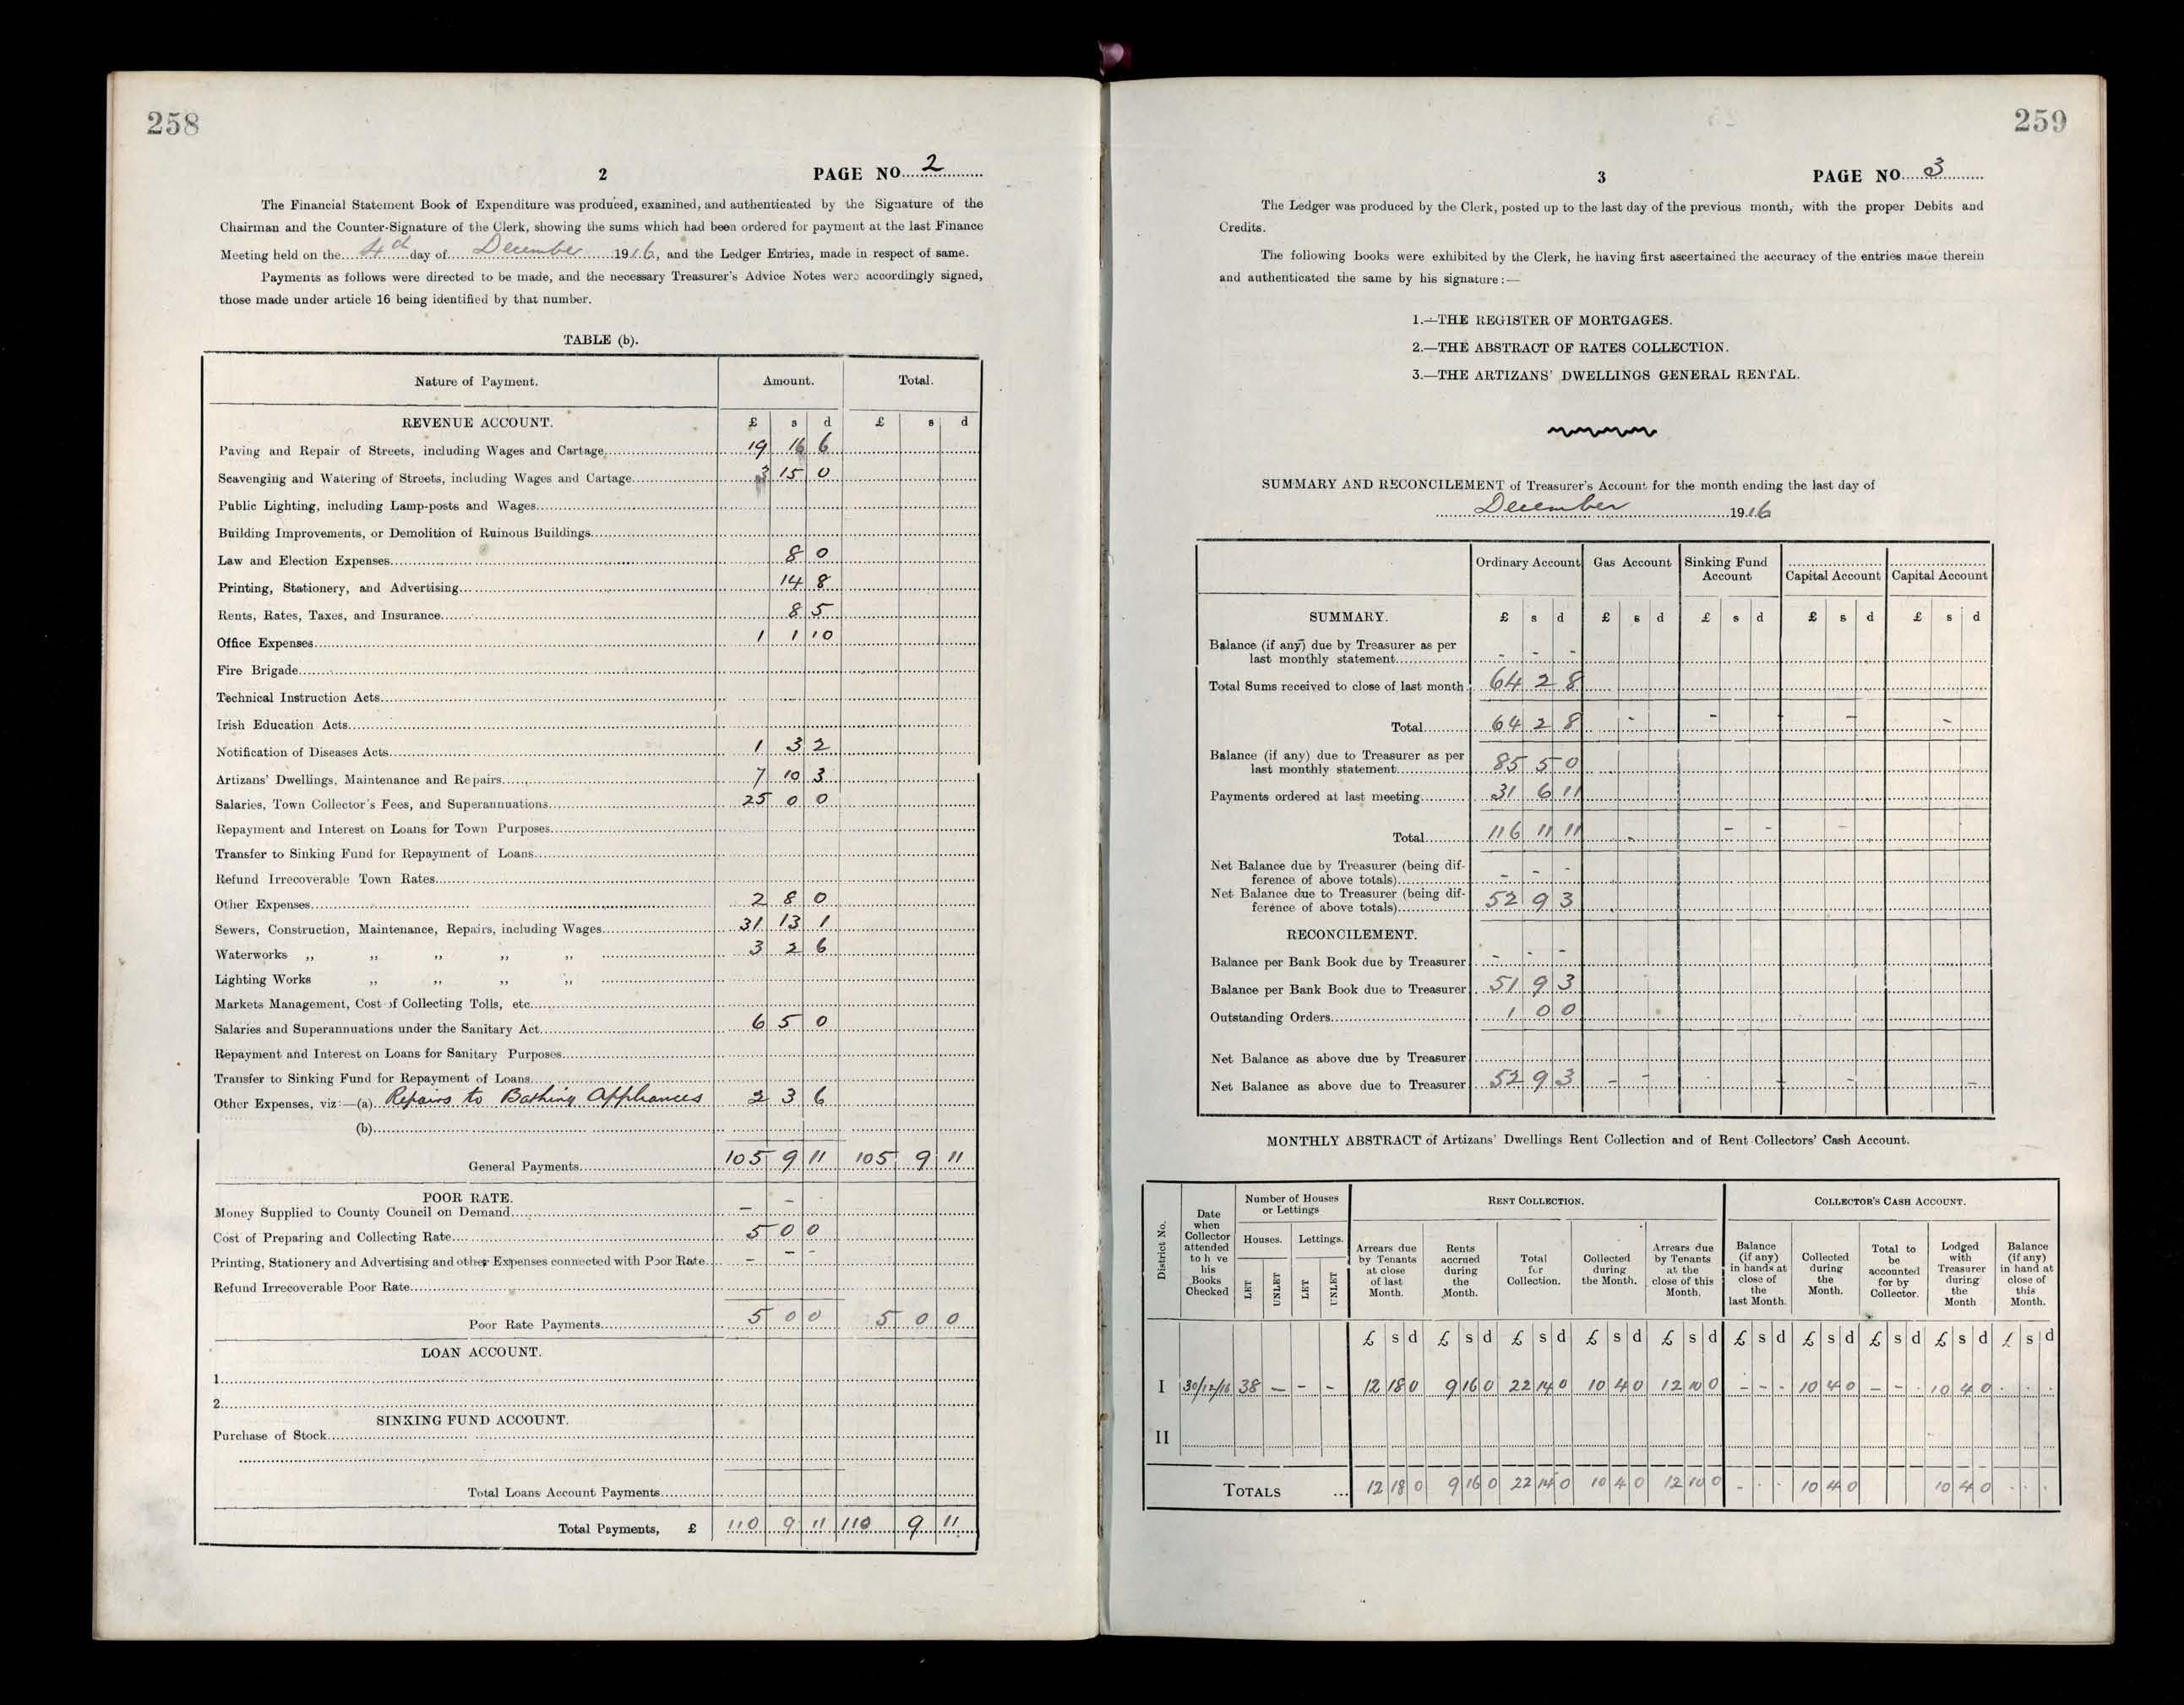 258
2 PAGE NO. 2
The Financial Statement Book of Expenditure was produced, examined, and authenticated by the Signature of the
Chairman and the Counter-Signature of the Clerk, showing the sums which had been ordered for payment at the last Finance
Meeting held on the 4th day of December 1916, and the Ledger Entries, made in respect of same.
Payments as follows were directed to be made, and the necessary Treasurer's Advice Notes were accordingly signed,
those made under article 16 being identified by that number.
TABLE (b).
Nature of Payment. Amount. Total.
REVENUE ACCOUNT. £ s d £ s d
Paving and Repair of Streets, including Wages and Cartage 19 16 6
Scavenging and Watering of Streets, including Wages and Cartage 3 15 0
Public Lighting, including Lamp-posts and Wages
Building Improvements, or Demolition of Ruinous Buildings
Law and Election Expenses 8 0
Printing, Stationery, and Advertising 14 8
Rents, Rates, Taxes, and Insurance 8 5
Office Expenses 1 1 10
Fire Brigade
Technical Instruction Acts
Irish Education Acts
Notification of Diseases Acts 1 3 2
Artizans' Dwellings, Maintenance and Repairs 7 10 3
Salaries, Town Collector's Fees, and Superannuations 25 0 0
Repayment and Interest on Loans for Town Purposes
Transfer to Sinking Fund for Repayment of Loans
Refund Irrecoverable Town Rates
Other Expenses 2 8 0
Sewers, Construction, Maintenance, Repairs, including Wages 31 13 1
Waterworks ,, ,, ,, ,, ,, 3 2 6
Lighting Works ,, ,, ,, ,,
Markets Management, Cost of Collecting Tolls, etc.
Salaries and Superannuations under the Sanitary Act 6 5 0
Repayment and Interest on Loans for Sanitary Purposes
Transfer to Sinking Fund for Repayment of Loans
Other Expenses, viz:—(a) Repairs to Bathing Appliances 2 3 6
(b)
General Payments 105 9 11 105 9 11
POOR RATE. -
Money Supplied to County Council on Demand —
Cost of Preparing and Collecting Rate 5 0 0
Printing, Stationery and Advertising and other Expenses connected with Poor Rate — - -
Refund Irrecoverable Poor Rate
Poor Rate Payments 5 0 0 5 0 0
LOAN ACCOUNT.
1
2
SINKING FUND ACCOUNT.
Purchase of Stock
Total Loans Account Payments
Total Payments, £ 110 9 11 110 9 11
259
3 PAGE NO. 3
The Ledger was produced by the Clerk, posted up to the last day of the previous month, with the proper Debits and
Credits.
The following books were exhibited by the Clerk, he having first ascertained the accuracy of the entries made therein
and authenticated the same by his signature:—
1.—THE REGISTER OF MORTGAGES.
2.—THE ABSTRACT OF RATES COLLECTION.
3.—THE ARTIZANS' DWELLINGS GENERAL RENTAL.
SUMMARY AND RECONCILEMENT of Treasurer's Account for the month ending the last day of
December 1916
Ordinary Account Gas Account Sinking Fund Account Capital Account Capital Account
SUMMARY. £ s d £ s d £ s d £ s d £ s d
Balance (if any) due by Treasurer as per
last monthly statement - - -
Total Sums received to close of last month 64 2 8
Total 64 2 8 - - - -
Balance (if any) due to Treasurer as per
last monthly statement 85 5 0
Payments ordered at last meeting 31 6 11
Total 116 11 11 - - - -
Net Balance due by Treasurer (being dif-
ference of above totals) - - -
Net Balance due to Treasurer (being dif-
ference of above totals) 52 9 3
RECONCILEMENT.
Balance per Bank Book due by Treasurer - - -
Balance per Bank Book due to Treasurer 51 9 3
Outstanding Orders 1 0 0
Net Balance as above due by Treasurer
Net Balance as above due to Treasurer 52 9 3 - - - -
MONTHLY ABSTRACT of Artizans' Dwellings Rent Collection and of Rent Collectors' Cash Account.
District No.
Date when Collector attended to h ve his Books Checked
Number of Houses or Lettings
Houses. Lettings.
LET UNLET LET UNLET
RENT COLLECTION.
Arrears due by Tenants at close of last Month.
Rents accrued during the Month.
Total for Collection.
Collected during the Month.
Arrears due by Tenants at the close of this Month.
COLLECTOR'S CASH ACCOUNT.
Balance (if any) in hands at close of the last Month.
Collected during the Month.
Total to be accounted for by Collector.
Lodged with Treasurer during the Month
Balance (if any) in hand at close of this Month.
£ s d £ s d £ s d £ s d £ s d £ s d £ s d £ s d £ s d £ s d
I 30/12/16 38 — - - 12 18 0 9 16 0 22 14 0 10 4 0 12 10 0 - - - 10 4 0 - - - 10 4 0 . . .
II
TOTALS ... 12 18 0 9 16 0 22 14 0 10 4 0 12 10 0 - . . 10 4 0 10 4 0 . . .